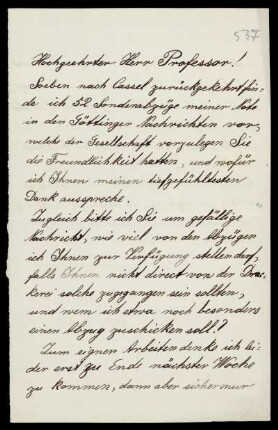 537
Hochgeehrter Herr Professor!
Soeben nach Cassel zurückgekehrt fin-
de ich 52 Sonderabzüge meiner Note
in den Göttinger Nachrichten vor,
welche der Gesellschaft vorzulegen Sie
die Freundlichkeit hatten, und wofür
ich Ihnen meinen tiefgefühltesten
Dank ausspreche.
Zugleich bitte ich Sie um gefällige
Nachricht, wie viel von den Abzügen
ich Ihnen zur Verfügung stellen darf,
falls Ihnen nicht direct von der Druc-
kerei solche zugegangen sein sollten,
und wem ich etwa noch besonders
einen Abzug zuschicken soll?
Zum eignen Arbeiten denke ich lei-
der erst zu Ende nächster Woche
zu kommen, dann aber sicher nur